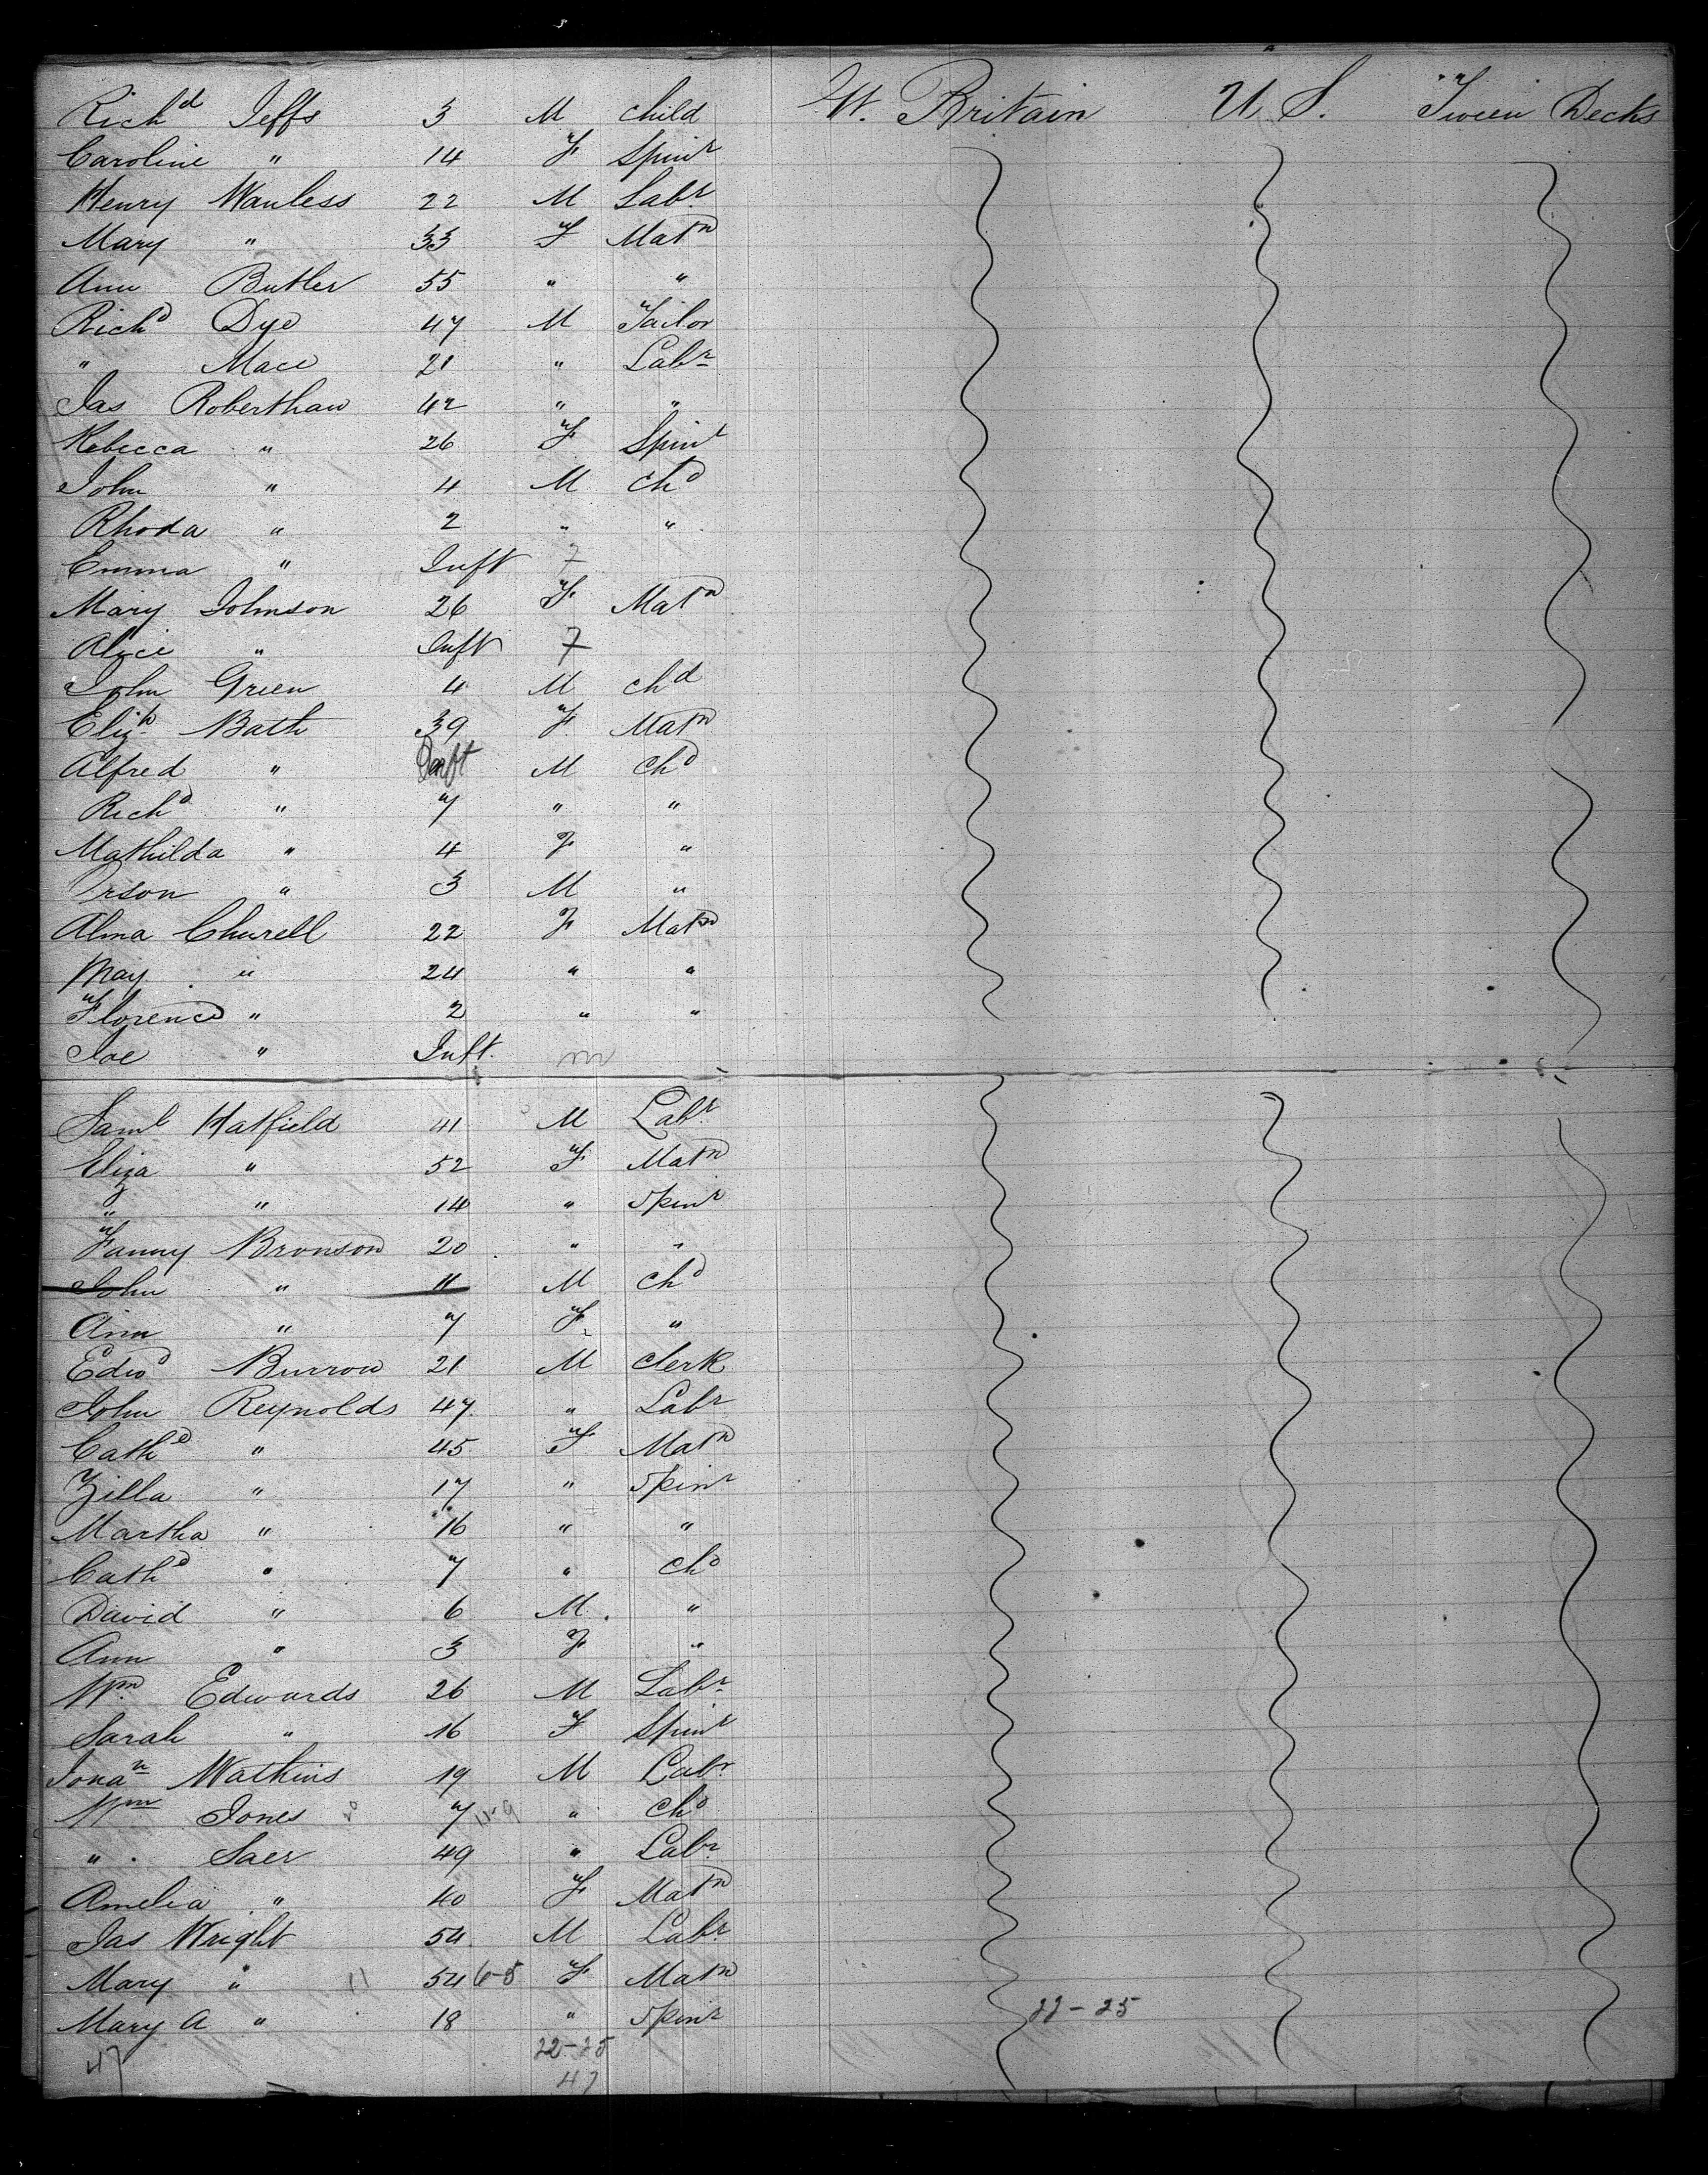 Richd Jeffs 3 M Child Gt. Britain U.S. Tween Decks
Caroline " 14 F Spinr
Henry Wanless 22 M Labr
Mary " 33 F Matn
Ann Butler 55 " "
Richd Dye 47 M Tailor
" Mace 21 " Labr
Jas Roberthaw 42 " "
Rebecca " 26 F Spinr
John " 4 M Chd
Rhoda " 2 " "
Emma " Inft F
Mary Johnson 26 F Matn
Alice " Inft F
John Green 4 M Chd
Elizh Bath 39 F Matn
Alfred " Inft M Chd
Richd " 7 " "
Mathilda " 4 F "
Orson " 3 M "
Alma Churell 22 F Matn
May " 24 " "
Florence " 2 " "
Joe " Inft. m
Saml Hatfield 41 M Labr
Eliza " 52 F Matn
" " 14 " Spinr
Fanny Bronson 20 " "
John " 11 M Chd
Ann " 7 F "
Edwd Burrow 21 M Clerk
John Reynolds 47 " Labr
Cathe " 45 F Matn
Zilla " 17 " Spinr
Martha " 16 " "
Cathe " 7 " Chd
David " 6 M "
Ann " 3 F "
Wm Edwards 26 M Labr
Sarah " 16 F Spinr
Jonan Watkins 19 M Labr
Wm Jones 7 11-9 " Chd
" Saer 49 " Labr
Amelia " 40 F Matn
Jas Wright 54 M Labr
Mary " 11 54 6-5 F Matn
Mary A " 18 " Spinr 22-25
22-25
47 47